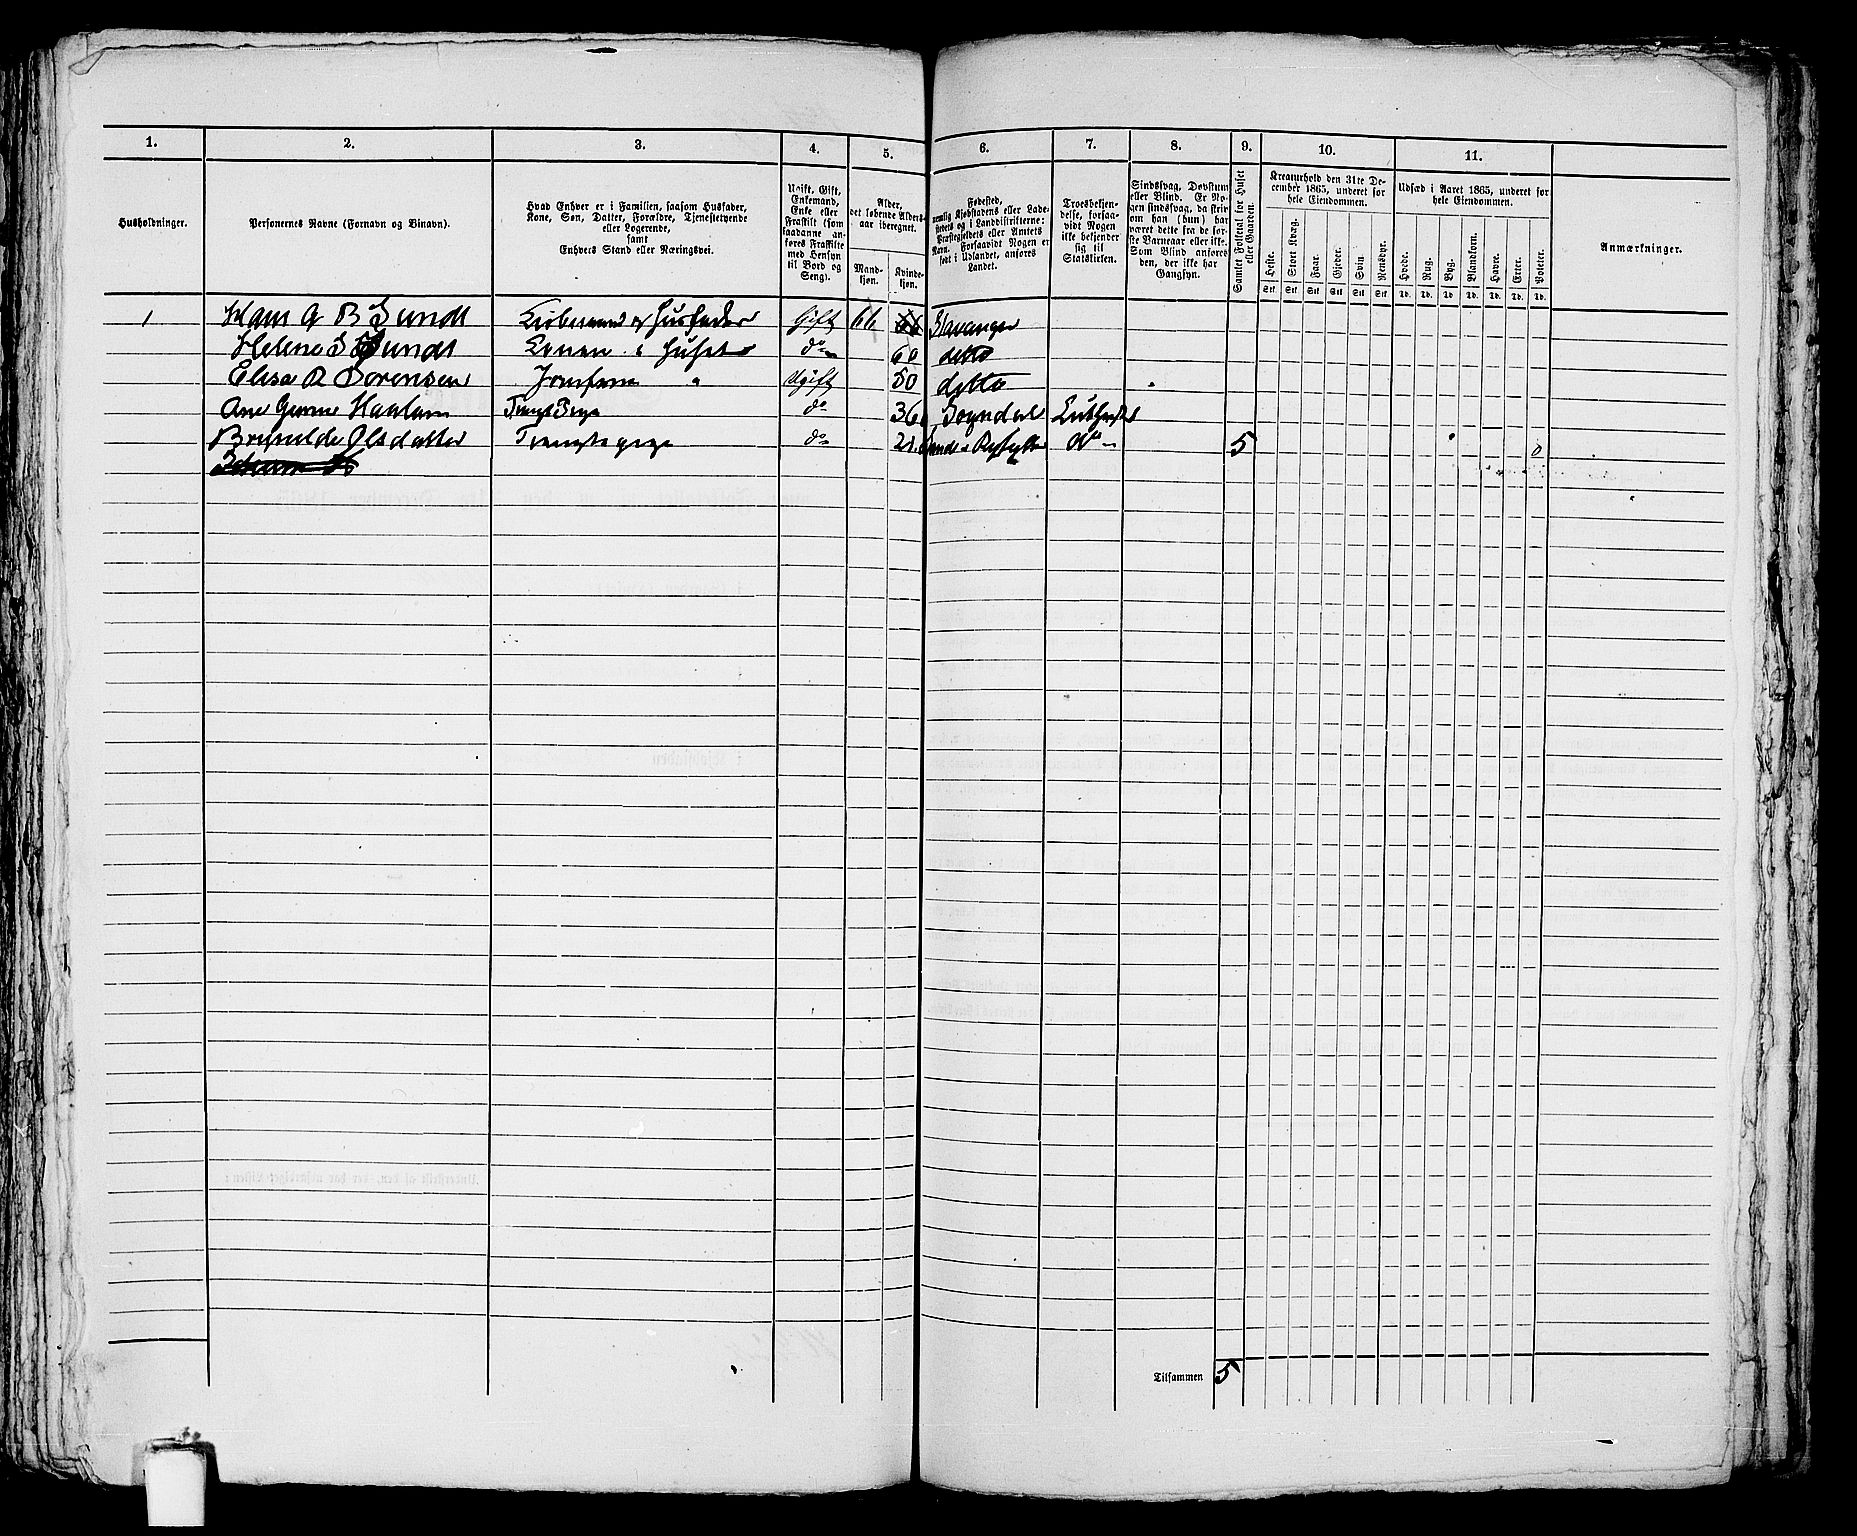 1. 2. 3. 4. 5. 6. 7. 8. 9. 10. 11.
Husholdninger.
Personernes Navne (Fornavn og Binavn).
Hvad Enhver er i Familien, saasom Husfader,
Kone, Søn, Datter, Forældre, Tjenestetyende
eller Logerende,
samt
Enhvers Stand eller Næringsvei.
Ugift, Gift,
Enkemand,
Enke eller
Fraskilt (som
saadanne an-
føres Fraskilte
med Hensyn
til Bord og
Seng).
Alder,
det løbende Alders-
aar iberegnet.
Mand-
kjøn.
Kvinde-
kjøn.
Fødested,
nemlig Kjøbstadens eller Lade-
stedets og i Landdistrikterne:
Præstegjeldets eller Amtets
Navn. Forsaavidt Nogen er
født i Udlandet, anføres
Landet.
Troesbekjen-
delse, forsaa-
vidt Nogen
ikke bekjender
sig til
Statskirken.
Sindssvag, Døvstum
eller Blind. Er No-
gen sindssvag, da skriv
om han (hun) har
været dette fra de før-
ste Barneaar eller ikke.
Som Blind anføres
den, der ikke har
Gangsyn.
Samlet Folketal for Huset
eller Gaarden.
Kreaturhold den 31te De-
cember 1865, underet for
hele Eiendommen.
Heste. Stort Kvæg. Faar. Gjeder. Svin. Rensdyr.
Stk Stk Stk Stk Stk Stk
Udsæd i Aaret 1865, underet for
hele Eiendommen.
Hvede. Rug. Byg. Blandkorn. Havre. Erter. Poteter.
Td. Td. Td. Td. Td. Td. Td.
Anmærkninger.
1 Hans G B Sundt Kjøbmand og Husfader Gift 66 66 Stavanger
Helene S Sundt Konen i Huset do 60 ditto
Elisa R Sørensen Jomfrue " Ugift 50 ditto
Ane Haaland do 36 Sogndal
Olsdatter do 21 do 5 0
Tilsammen 5